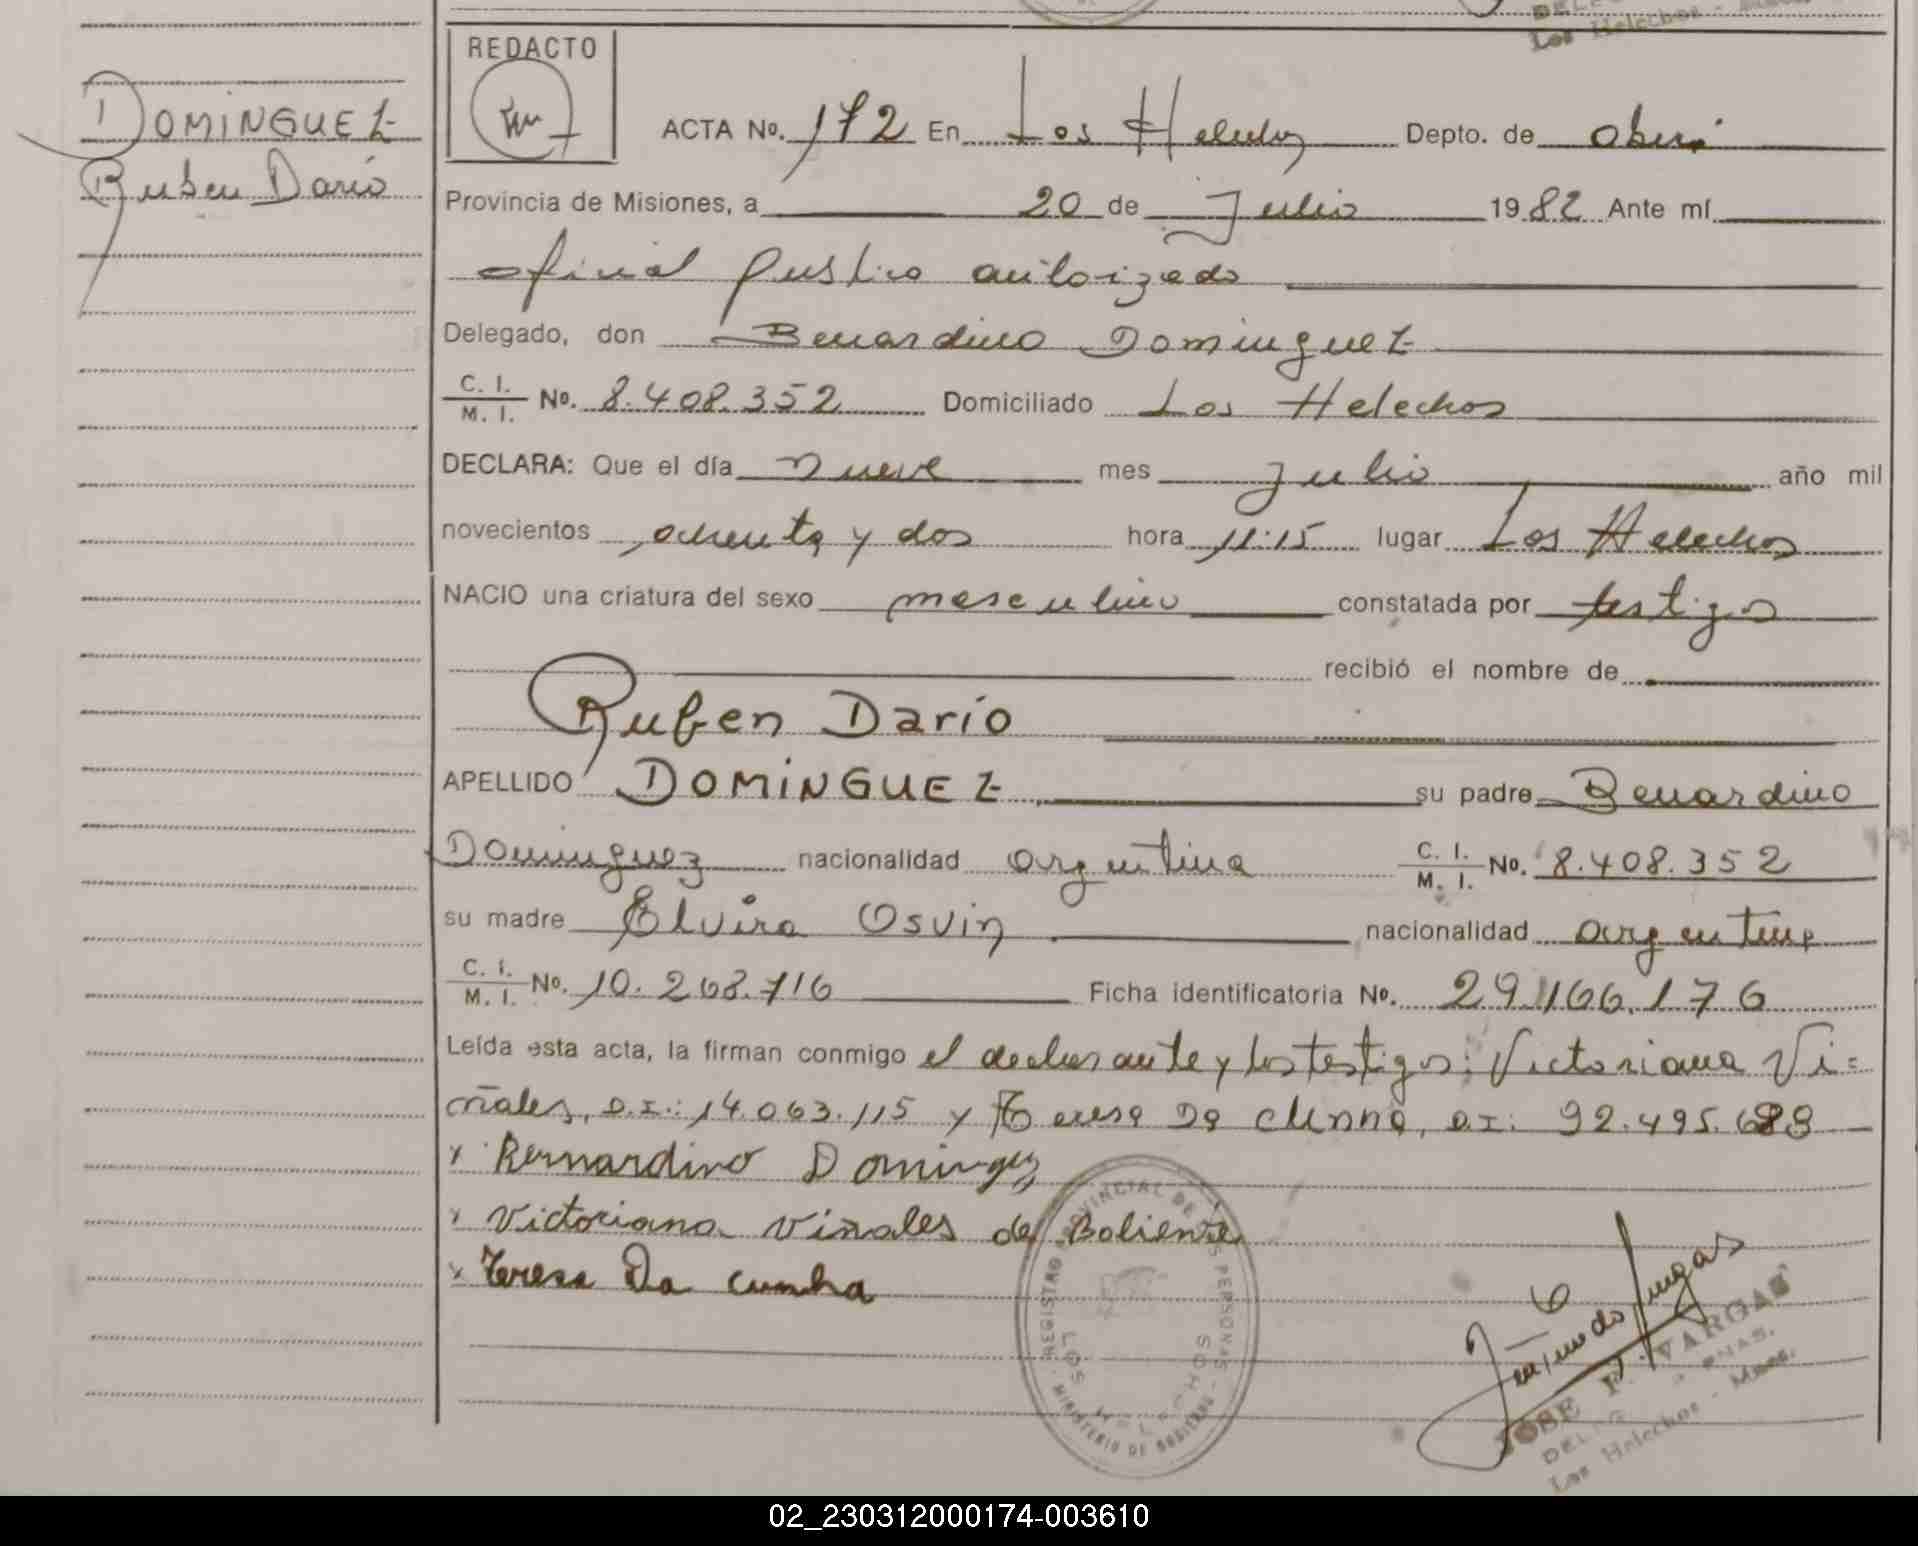 DOMINGUEZ
Ruben Darío
REDACTO
ACTA No. 172 En Los Helechos Depto. de Oberá
Provincia de Misiones, a 20 de Julio 1982 Ante mí
oficial publico autorizado
Delegado, don Bernardino Dominguez
C. I. / M. I. No. 8.408.352 Domiciliado Los Helechos
DECLARA: Que el día nueve mes Julio año mil
novecientos ochenta y dos hora 11:15 lugar Los Helechos
NACIO una criatura del sexo masculino constatada por testigos
recibió el nombre de
Ruben Darío
APELLIDO DOMINGUEZ su padre Bernardino
Dominguez nacionalidad argentina C. I. / M. I. No. 8.408.352
su madre Elvira Osvin nacionalidad argentina
C. I. / M. I. No. 10.268.716 Ficha identificatoria No. 29.166.176
Leída esta acta, la firman conmigo el declarante y los testigos: Victoriana Vi=
ñales, D.I.: 14.063.115 y Teresa Da Cunha, D.I: 92.495.689
x Bernardino Dominguez
x Victoriana Viñales de Boliense
x Teresa Da Cunha
REGISTRO PROVINCIAL DE LAS PERSONAS
LOS HELECHOS
MINISTERIO DE GOBIERNO
JOSE F. VARGAS
Los Helechos - Mnes.
02_230312000174-003610